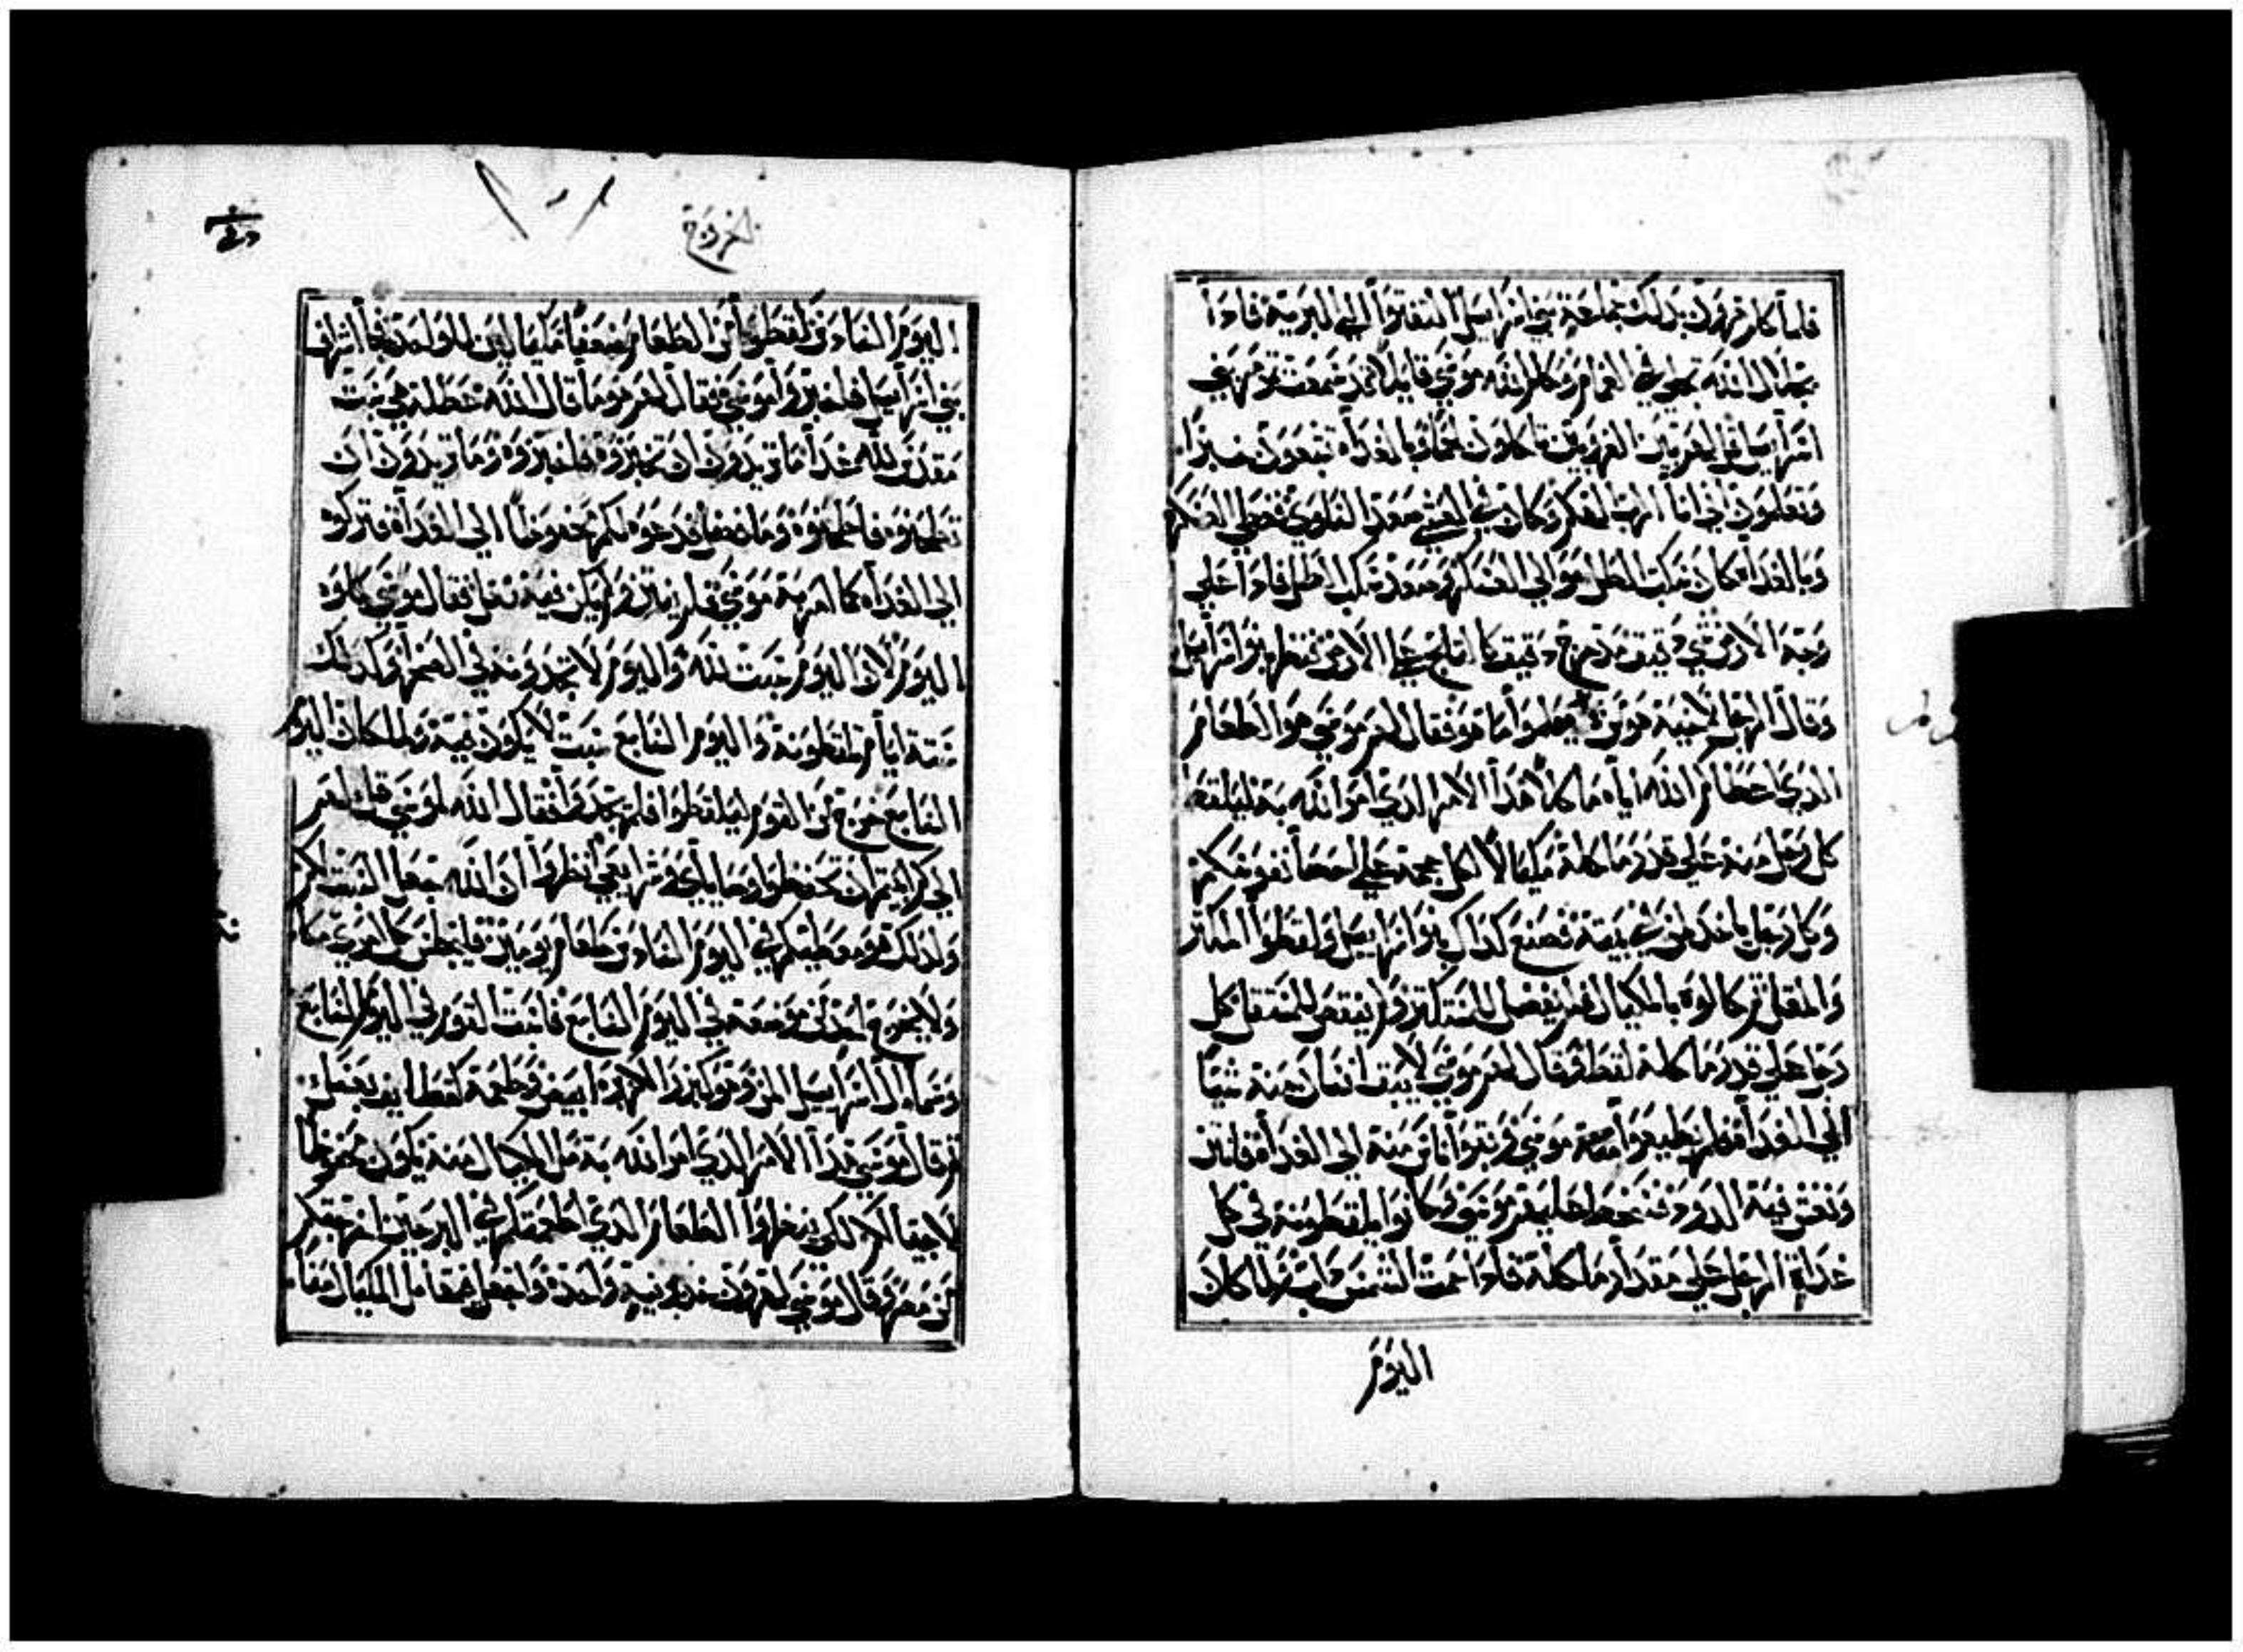 فلما كلم هرون بذلك جماعة بني اسراييل التفتوا الي البرية فاذا
بجلال الله تجلى في الغمام وكلم الله موسي قايلا قد سمعت تومر بني
اسراييل قل لهم بين الغروبين تاكلون لحما وبالغداه تشبعون خبزا
وتعلمون اني انا الرب الهكم وكان في العشي صعد السلوي فغطي العسكر
وبالغداه كان مكب الطل حوالي العسكر وصعد مكب الطل فاذا علي
وجه الارض شي دقيق مدحرج دقيق كالثلج علي الارض فنظر بنو اسراييل
وقال الرجل لاخيه هو من لم يعلموا ما هو فقال لهم موسي هو الطعام
الذي اعطاكم الله اياه ماكلا هذا الامر الذي امر الله به ليلقط
كل رجل منه علي قدر ما كله مكيالا لكل جمجمة علي احصا نفوسكم
وكل رجل ياخذ لمن في بيته فصنع كذلك بنو اسراييل ولقطوا المكثر
والمقلل ثم كالوه بالمكيال فلم يفضل للمستكثر ولم ينقص للمستقل كل
رجل علي قدر ماكله لقط وقال لهم موسي لا يبق انسان منه شيا
الي الغداه فلم يطيعوا موسي وبقوا اناس منه الي الغداه فانتن
ونغش فيه الدود فسخط عليهم موسي وكانوا يلقطونه في كل
غداة الرجل علي مقدار ماكله فاذا حمت الشمس داب ولما كان
اليوم
الخروج
اليوم السادس لقطوا من الطعام ضعفا مكيالين للواحد فجا اشراف
بني اسراييل فاخبروا موسي فقال لهم هو ما قال الله عطلة هي سبت
مقدس لله غدا ما تريدون ان تخبزوه فاخبزوه وما تريدون ان
تطبخوه فاطبخوه وما فضل فدعوه لكم محفوظا الي الغداه فتركوه
الي الغداه كما امر به موسي فلم ينتن ولم يكن فيه نغل فقال موسي كلوه
اليوم لان اليوم سبت لله واليوم لا تجدونه في الصحرا وكذلك
ستة ايام تلقطونه واليوم السابع سبت لا يكون فيه ولما كان اليوم
السابع خرج من القوم ليلقطوا فلم يجدوا فقال الله لموسي قل لهم
الي كم ابيتم ان تحفظوا وصاياي وشرايعي انظروا ان الله جعل السبت لكم
ولذلك هو معطيكم في اليوم السادس طعام يومين فليجلس كل امري مكانه
ولا يخرج احد من موضعه في اليوم السابع فاسبت القوم في اليوم السابع
وسماه ال اسراييل المن وهو كبزر الكزبره ابيض وطعمه كقطايف بعسل
ثم قال موسي هذا الامر الذي امر الله به مل المكيال منه يكون محفوظا
لاجيالكم لكي ينظروا الطعام الذي اطعمتكم في البر حين اخرجتكم
من مصر وقال موسي لهرون خد برنية واحده واجعل فيها مل المكيال منا